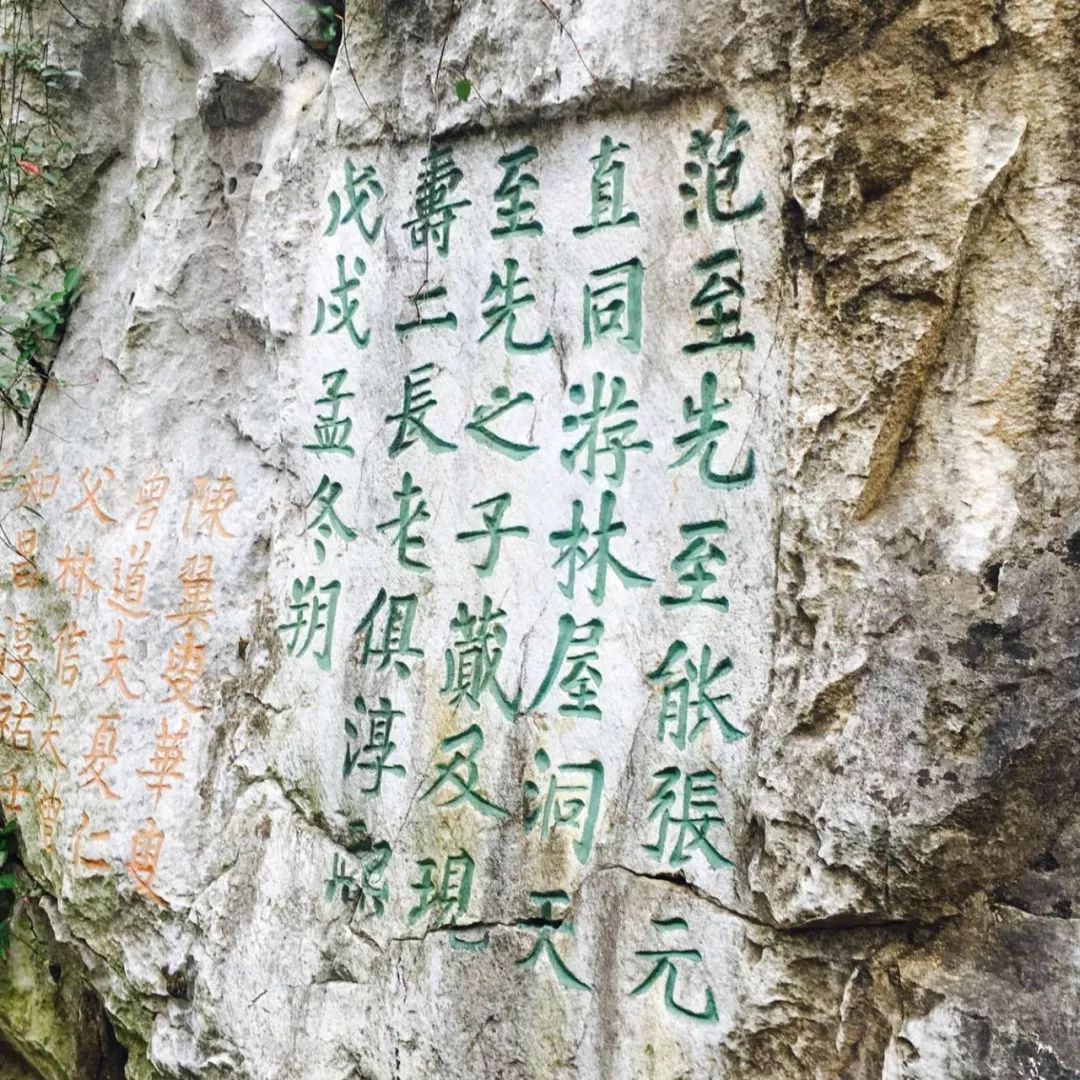 范至先至能張元
直同游林屋洞天
至先之子蕆及現
壽二長老俱淳熙
戊戌孟冬朔
陳翼叟華叟
曾道夫夏仁
父林信夫曾
知昌淳祐壬